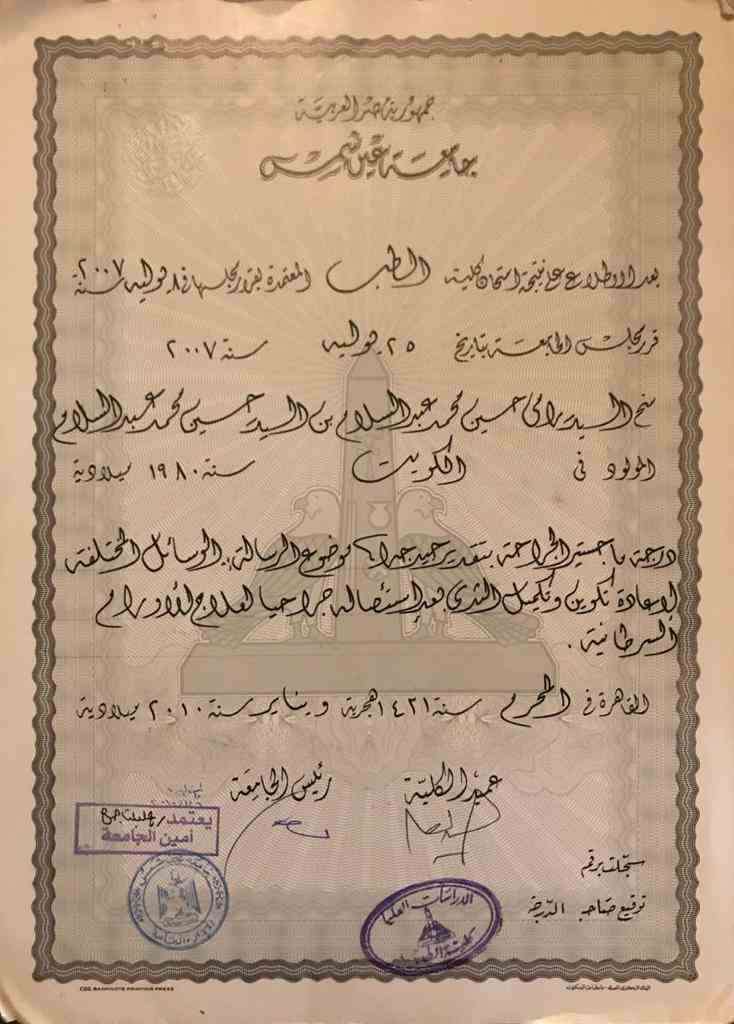 جمهورية مصر العربية
جامعة عين شمس
بعد الاطلاع على نتيجة امتحان كلية الطب المعتمدة بقرار مجلسها فى ٨ يوليه سنة ٢٠٠٧
قرر مجلس الجامعة بتاريخ ٢٥ يوليه سنة ٢٠٠٧
منح السيد رامى حسين محمد عبد السلام بن السيد حسين محمد عبد السلام
المولود فى الكويت سنة ١٩٨٠ ميلادية
درجة ماجستير الجراحة بتقدير جيد جدا، موضوع الرسالة: الوسائل المختلفة
لإعادة تكوين وتكميل الثدى بعد إستئصاله جراحيا لعلاج الأورام
السرطانية.
القاهرة فى المحرم سنة ١٤٢١ هجرية ويناير سنة ٢٠١٠ ميلادية
عميد الكلية رئيس الجامعة
يعتمد
أمين الجامعة
سجلت برقم
توقيع صاحب الدرجة
الدراسات العليا
كلية الطب
CBE BANKNOTE PRINTING PRESS